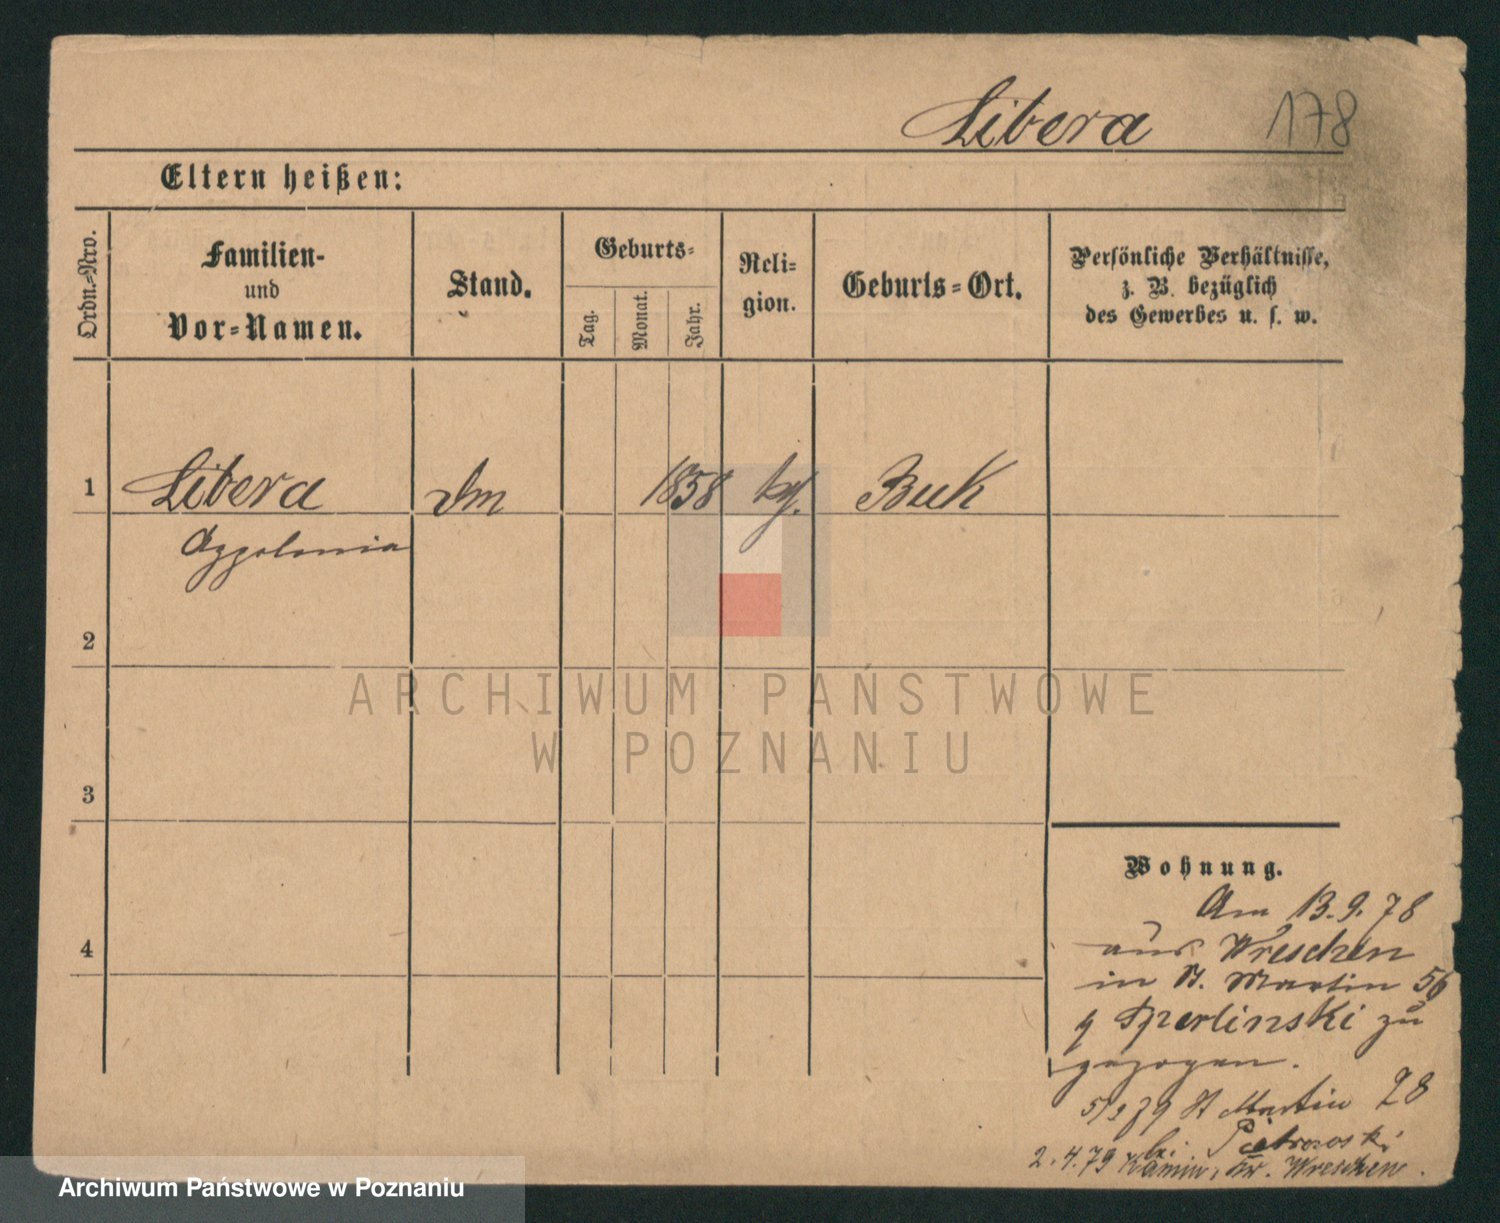 Libera 178
Eltern heißen:
Ordn.-Nro.
Familien-
und
Vor-Namen.
Stand.
Geburts-
Tag.
Monat.
Jahr.
Reli-
gion.
Geburts-Ort.
Persönliche Verhältnisse,
z. B. bezüglich
des Gewerbes u. s. w.
1 Libera 1858 Buk
Appolonia
2
ARCHIWUM PAŃSTWOWE
W POZNANIU
3
Wohnung.
Am 13.9.78
4
aus Wreschen
in St. Martin 56
Sperlinski zu
gezogen.
St Martin 28
bei Pietrowski
2.4.79 Kamin, Kr. Wreschen.
Archiwum Państwowe w Poznaniu